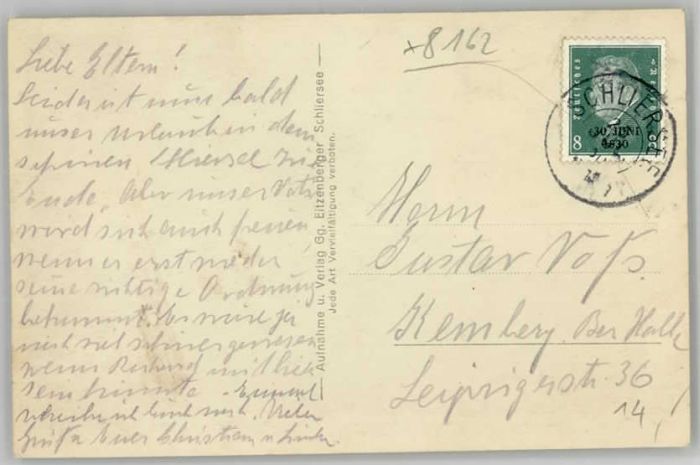 Liebe Eltern!
Leider ist nun bald
unser Urlaub in dem
schönen Schliersee zu
Ende. Aber unser Vati
wird sich auch freuen
wenn er erst wieder
seine richtige Ordnung
bekommt. Es wäre ja
noch viel schöner gewesen
wenn Richard mit hier
sein könnte.
schreibe ich Euch noch. Viele
Grüße Euer Christian u.
Aufnahme u. Verlag Gg. Eitzenberger Schliersee
Jede Art Vervielfältigung verboten.
*8162
Deutsches Reich
8
30. JUNI
1930
SCHLIERSEE
Herrn
Gustav Voß.
Kemberg. Bez Halle
Leipzigerstr. 36
14